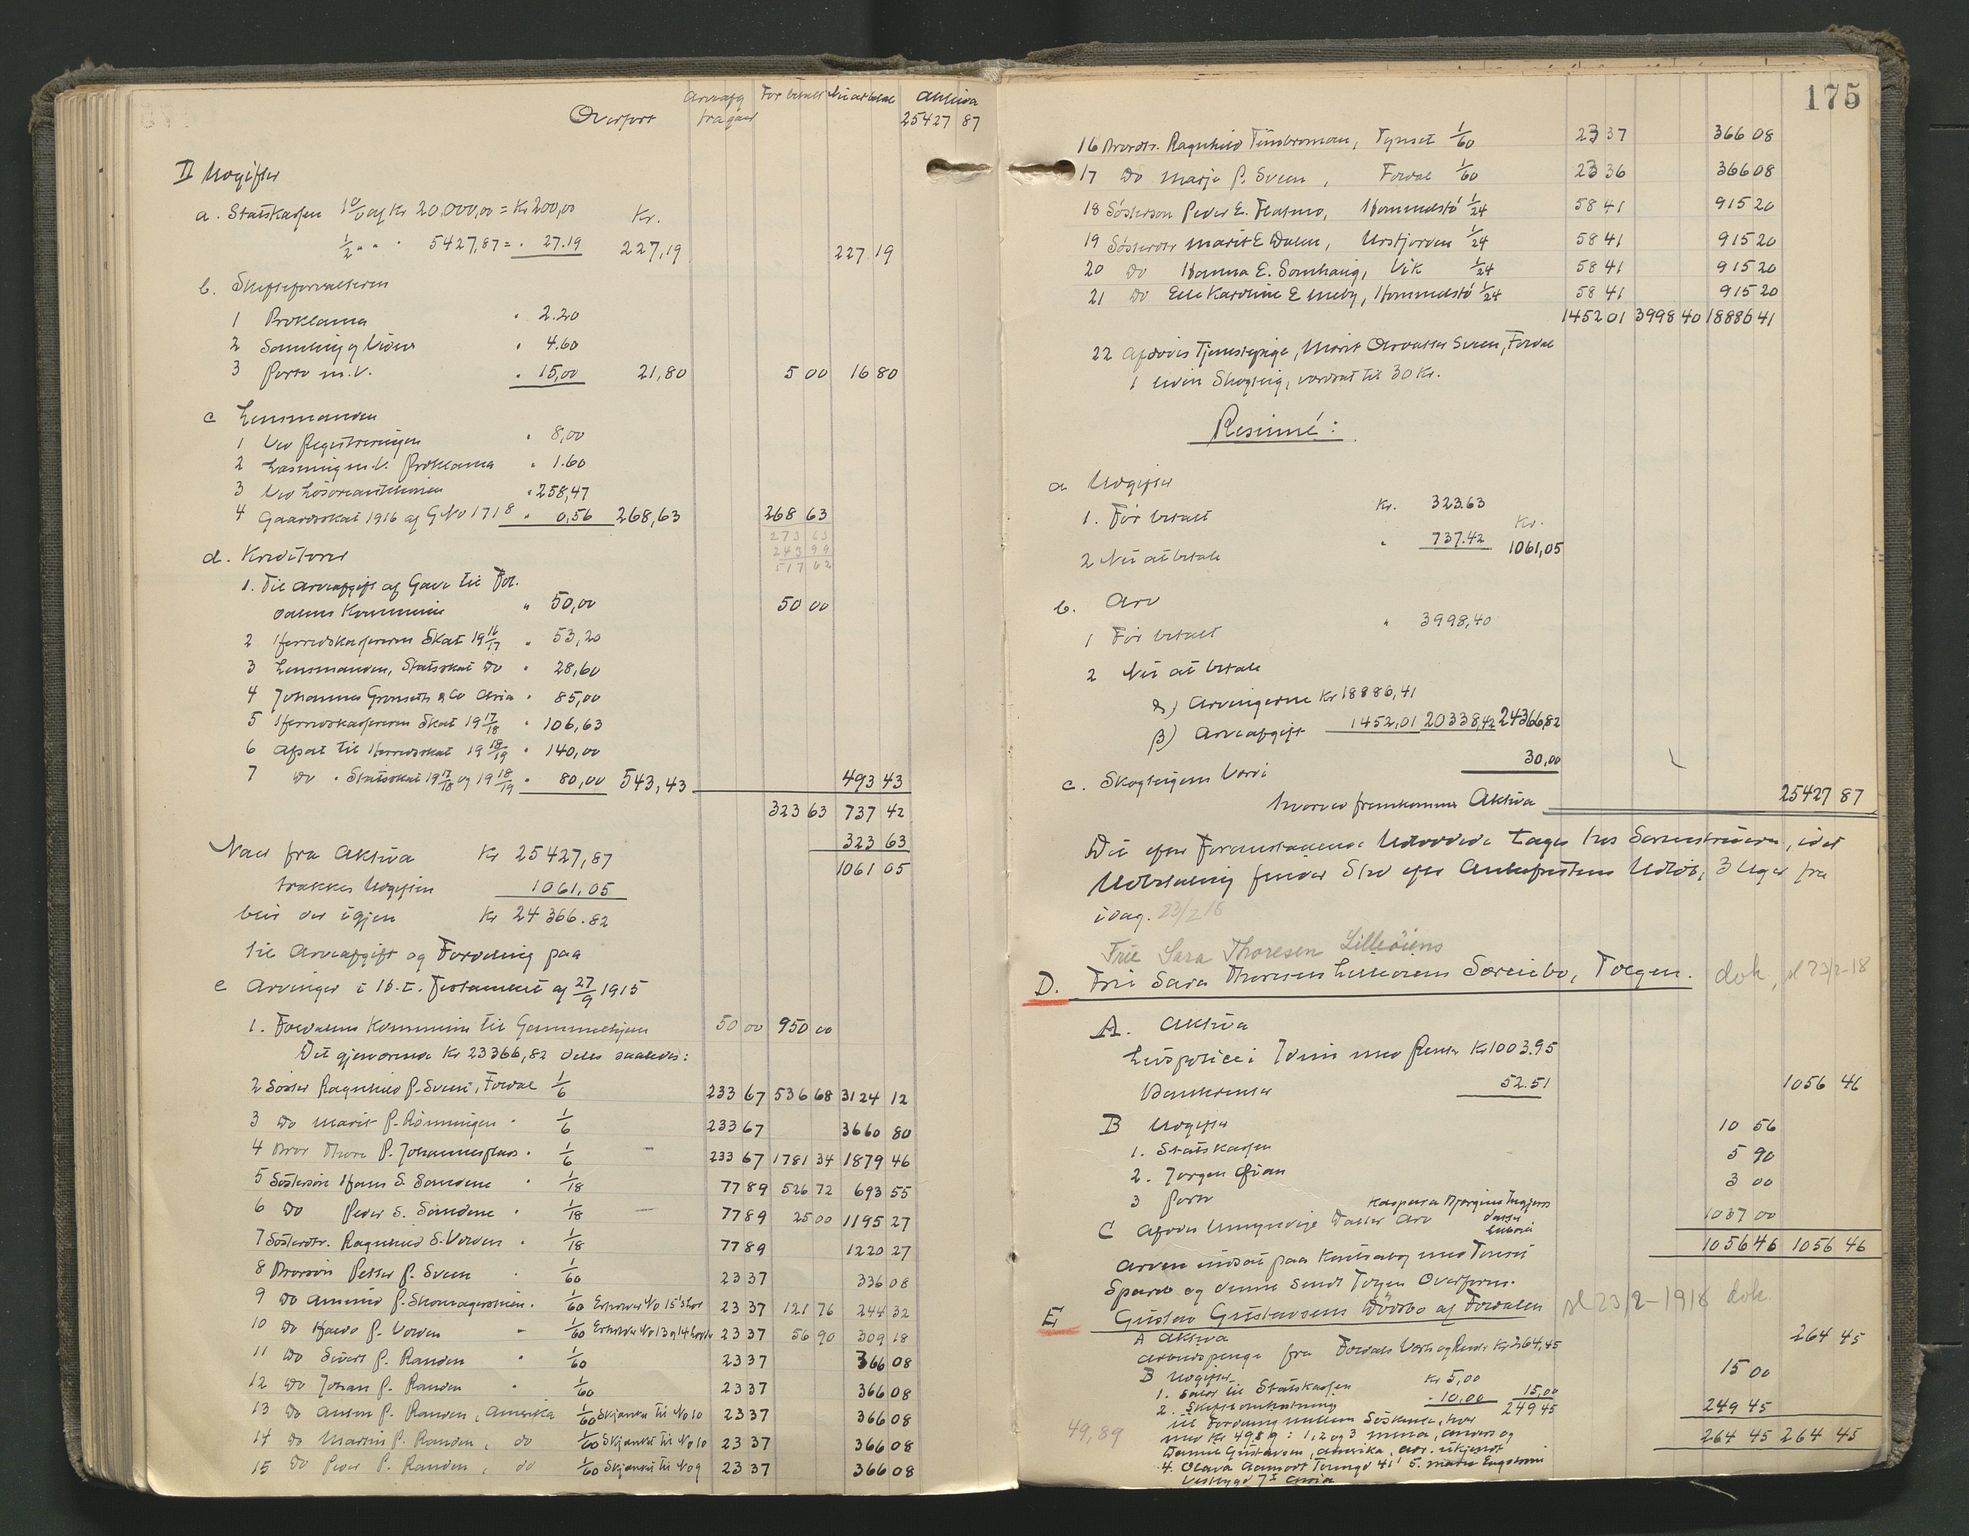 Overført Arveafg. fragaar Før betalt Nu at betale Aktiva 25427 87
II Udgifter
a. Statskassen 1% af Kr 20.000,00 = Kr 200,00 Kr.
1/2 " " " 5427,87 = " 27.19 227,19 227 19
b. Skifteforvalteren
1 Proklama " 2.20
2 Samling og Vidner " 4.60
3 Porto m.v. " 15,00 21,80 5 00 16 80
c Lensmanden
1 Ved Registreringen " 8,00
2 Læsning m.v. Proklama " 1.60
3 Ved Løsøreauktionen " 258,47
4 Gaardsskat 1916 af GNo 17 18 " 0,56 268,63 268 63
273 63
243 99
517 62
d. Kreditorer
1. Til Arveafgift af Gave til Fol-
dalens Kommune " 50,00 50 00
2 Herredskassereren Skat 19 16/17 " 53,20
3 Lensmanden, Statsskat Do " 28,60
4 Johannes Grønseth & Co Kria " 85,00
5 Herredskassereren Skat 19 17/18 " 106,63
6 Afsat til Herredsskat 19 18/19 " 140,00
7 Do " Statsskat 19 17/18 og 19 18/19 " 80,00 543,43 493 43
323 63 737 42
323 63
1061 05
Naar fra Aktiva Kr 25427,87
trækkes Udgifter 1061,05
blir der igjen Kr 24366.82
til Arveafgift og Fordeling paa
e Arvinger i H. t. Testament af 27/9 1915
1. Foldalens Kommune til Gammelhjem 50 00 950 00
Det gjenværende Kr 23366,82 deles saaledes:
2 Søster Ragnhild P. Sveen, Foldal 1/6 233 67 536 68 3124 12
3 Do Marit P. Rønningen " 1/6 233 67 3660 80
4 Bror Thore P. Johannesplads " 1/6 233 67 1781 34 1879 46
5 Søstersøn Hans S. Sandene " 1/18 77 89 526 72 693 55
6 Do Peder S. Sandene " 1/18 77 89 25 00 1195 27
7 Søsterdtr. Ragnhild S. Volden " 1/18 77 89 1220 27
8 Brorsøn Petter P. Sveen " 1/60 23 37 336 08
9 Do Amund P. Skomagermoen " 1/60 Erhverver No 15's lod 23 37 121 76 244 32
10 Do Halvo P. Volden " 1/60 Erhverver No 13 og 14 lodder 23 37 56 90 309 18
11 Do Sivert P. Randen " 1/60 23 37 366 08
12 Do Johan P. Randen " 1/60 23 37 366 08
13 Do Anton P. Randen, Amerika 1/60 Skjænket til No 10 23 37 366 08
14 Do Martin P. Randen, do 1/60 Skjænket til No 10 23 37 366 08
15 Do Peder P. Randen, do 1/60 Skjænket til No 9 23 37 366 08
175
16 Brordtr. Ragnhild Finsbromoen, Tynset 1/60 23 37 366 08
17 Do Marja P. Sveen, Foldal 1/60 23 36 366 08
18 Søstersøn Peder E. Flatmo, Hommelstø 1/24 58 41 915 20
19 Søsterdtr Marit E Dalen, Ursfjorden 1/24 58 41 915 20
20 Do Hanna E. Somhaug, Vik 1/24 58 41 915 20
21 Do Elle Karoline E Meby, Hommelstø 1/24 58 41 915 20
1452 01 3998 40 18886 41
22 Afdødes Tjenestepige, Marit Olvatter Sveen, Foldal
1 liden Skogteig, værdsat til 30 Kr.
Resumé:
a Udgifter
1. Før betalt Kr. 323.63 Kr.
2 Nu at betale " 737.42 1061,05
b. Arv
1 Før betalt " 3998,40
2 Nu at betale
α) Arvingerne Kr 18886,41
β) Arveafgift 1452,01 20338,42 24366,82
c. Skogteigens Værdi 30,00
hvorved fremkommer Aktiva 25427 87
Det efter Foranstaaende Udlodede tages hos Sorenskriveren, idet
Udbetaling finder Sted efter Ankefristens Udløb, 3 Uger fra
idag. 23/2 18
Frie Sara Thoresen Lilleøiens
D. Frie Sara Thoresen Lilleøiens Særeiebo, Tolgen. dok, sl 23/2-18
A. Aktiva
Livspolice i Idun med Renter Kr 1003.95
Bankrenter 52.51 1056 46
B Udgifter
1. Statskassen 10 56
2. Jørgen Øian 5 90
3 Porto 3 00
C Afdødes Umyndige Datter Arv Kaspara Bjørgine Ingjers datter Lilleøi 1037 00
Arven indsat paa Kontrabog med Tolgens 1056 46 1056 46
Spareb og denne sendt Tolgen Overform.
E Gustav Gustavsens Dødsbo af Foldalen sl 23/2-1918 dok.
A Aktiva
Arbeidspenge fra Foldals Verk og Renter Kr 264,45 264 45
B Udgifter
1. Gebyr til Statskassen Kr 5,00 15 00
2. Skifteomkostning " 10,00 15,00
249 45
til Fordeling mellem Søskende, hver 249 45
49,89 med Kr 49,89: 1, 2 og 3 Mina, Anders og 264 45 264 45
Daniel Gustavsen, Amerika, adr. ukjendt
4. Olava Aamodt Torvgd 41 5.